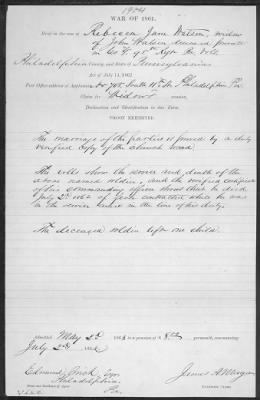 1924
WAR OF 1861.
Brief in the case of Rebecca Jane Watson, widow
of John Watson deceased private
Co. 95th Regt Pa Vols.
Philadelphia County, and State of Pennsylvania
Act of July 14, 1862
Post Office address of Applicant, No 705 South 11th St. Philadelphia Pa.
Claim for Widow's pension.
Declaration and Identification in due Form.
PROOF EXHIBITED.
The marriage of the parties is proved by a duly
verified copy of the church record.
The rolls show the service and death of the
above named soldier, and the verified certificate
of his commanding officer shows that he died
July 2d 1862 of fever contracted while he was
in the service and in the line of his duty.
The deceased soldier left one child.
Admitted May 2d 1863 to a pension of $8.00 per month, commencing
July 2d 1862
Edmund Esqr
Philadelphia
Pa.
James A Morgan
EXAMINING CLERK.